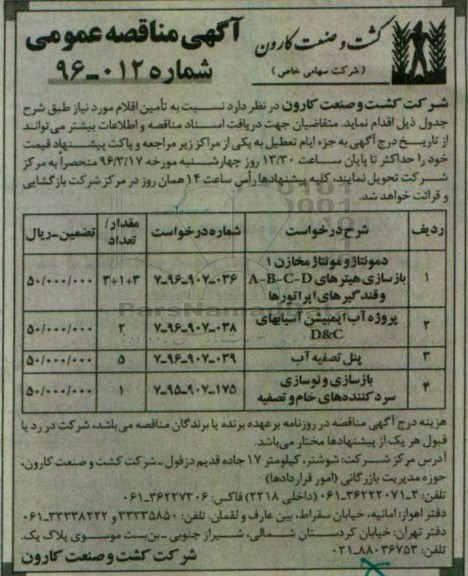 کشت و صنعت کارون
( شرکت سهامی خاص )
آگهی مناقصه عمومی
شماره ۰۱۲-۹۶
شرکت کشت و صنعت کارون در نظر دارد نسبت به تأمین اقلام مورد نیاز طبق شرح
جدول ذیل اقدام نماید. متقاضیان جهت دریافت اسناد مناقصه و اطلاعات بیشتر می‌توانند
از تاریخ درج آگهی به جزء ایام تعطیل به یکی از مراکز زیر مراجعه و پاکت پیشنهاد قیمت
خود را حداکثر تا پایان ساعت ۱۳/۳۰ روز چهارشنبه مورخه ۹۶/۳/۱۷ منحصراً به مرکز
شرکت تحویل نمایند، کلیه پیشنهادها رأس ساعت ۱۴ همان روز در مرکز شرکت بازگشایی
و قرائت خواهد شد.
ردیف شرح درخواست شماره درخواست مقدار/تعداد تضمین-ریال
۱ دمونتاژ و مونتاژ مخازن ۱ بازسازی هیترهای A-B-C-D و قندگیرهای اپراتورها ۷-۹۶-۹۰۷-۰۳۶ ۳+۱+۳ ۵۰/۰۰۰/۰۰۰
۲ پروژه آب ایمبیشن آسیابهای D&C ۷-۹۶-۹۰۷-۰۳۸ ۲ ۵۰/۰۰۰/۰۰۰
۳ پنل تصفیه آب ۷-۹۶-۹۰۷-۰۳۹ ۵ ۵۰/۰۰۰/۰۰۰
۴ بازسازی و نوسازی سردکننده‌های خام و تصفیه ۷-۹۵-۹۰۷-۱۷۵ ۱ ۵۰/۰۰۰/۰۰۰
هزینه درج آگهی مناقصه در روزنامه بر عهده برنده یا برندگان مناقصه می‌باشد، شرکت در رد یا
قبول هر یک از پیشنهادها مختار می‌باشد.
آدرس مرکز شرکت: شوشتر، کیلومتر ۱۷ جاده قدیم دزفول - شرکت کشت و صنعت کارون،
حوزه مدیریت بازرگانی (امور قراردادها)
تلفن: ۲-۳۶۲۲۲۰۷۱-۰۶۱ (داخلی ۲۲۱۸) فاکس: ۳۶۲۲۷۳۰۶-۰۶۱
دفتر اهواز: امانیه، خیابان سقراط، بین عارف و لقمان. تلفن: ۳۳۳۳۵۸۵۰ و ۳۳۳۳۸۲۲۲-۰۶۱
دفتر تهران: خیابان کردستان شمالی، شیراز جنوبی - بن‌بست موسوی پلاک یک.
تلفن: ۸۸۰۳۶۷۵۳-۰۲۱
شرکت کشت و صنعت کارون